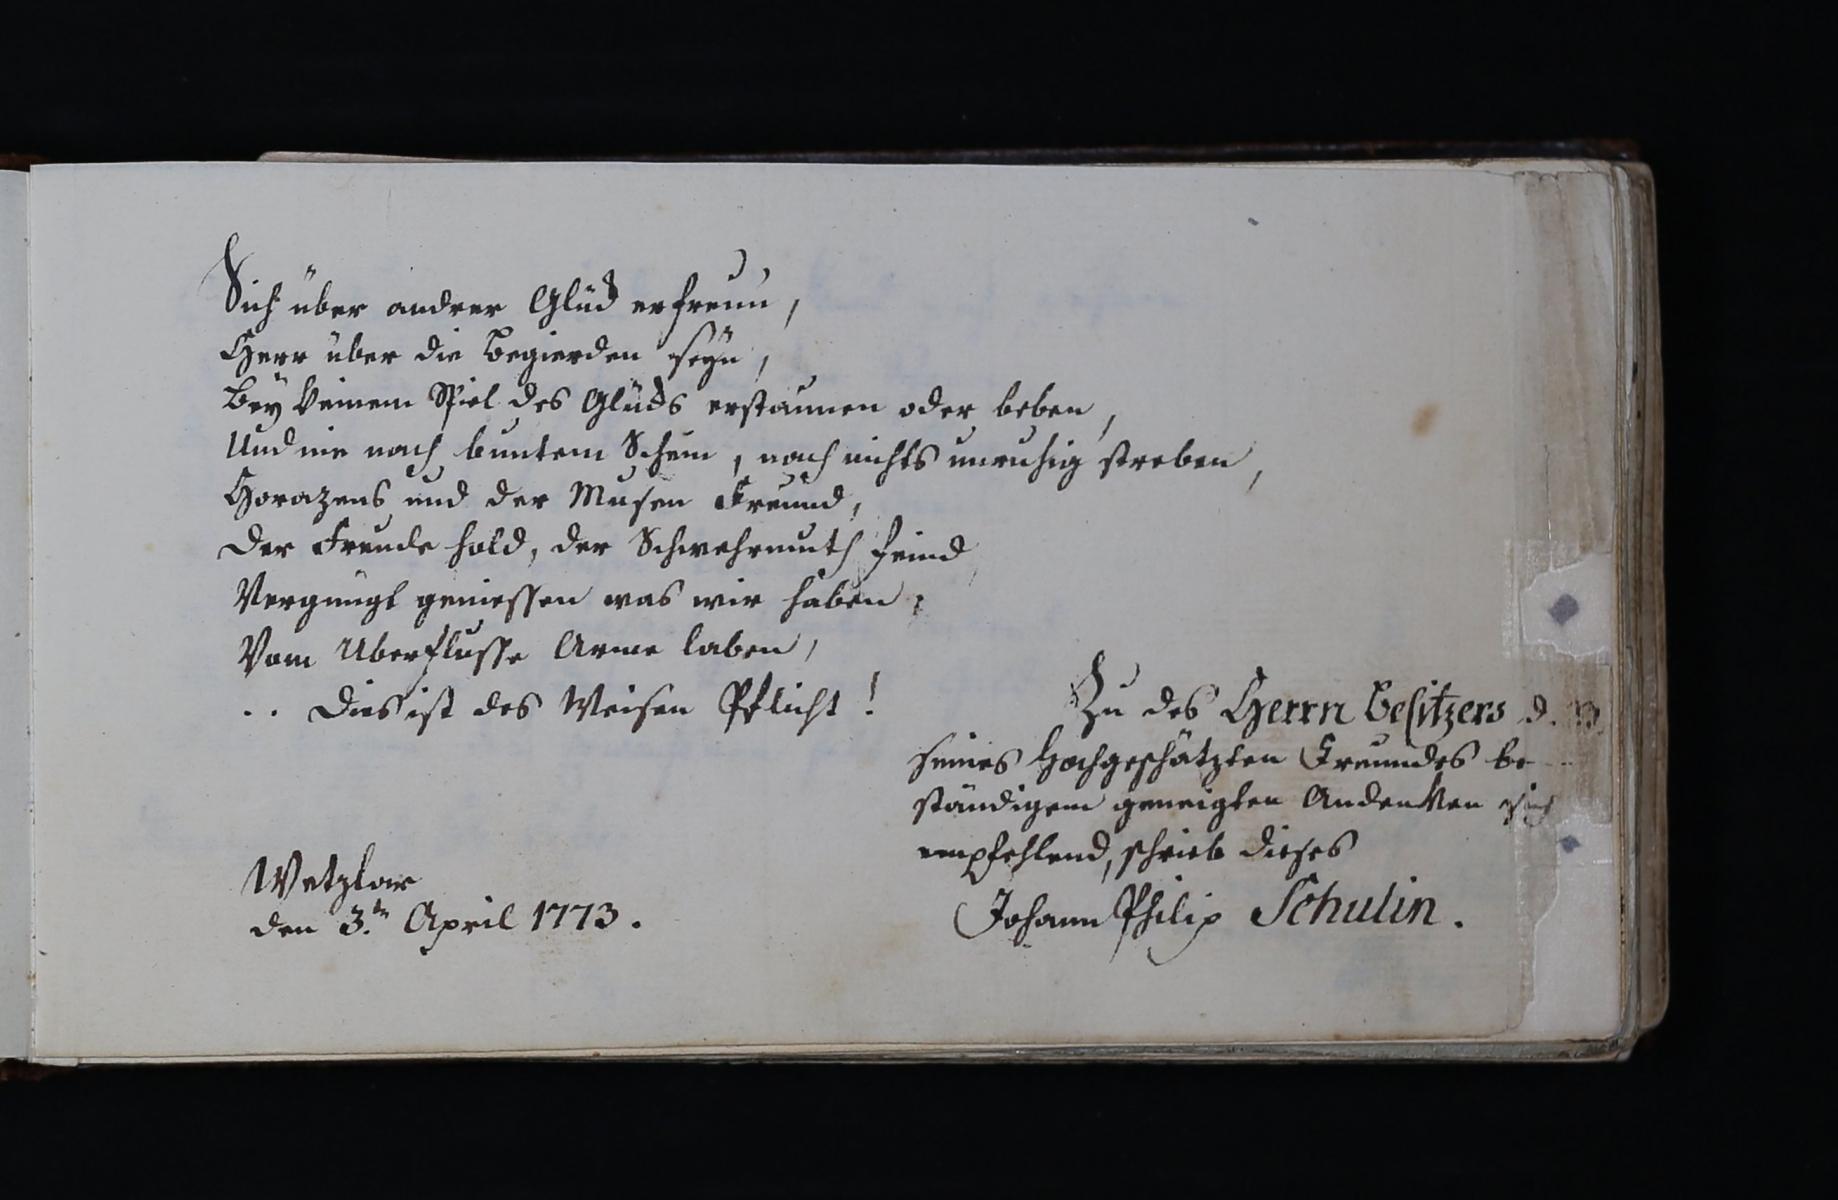 Sich über andrer Glück erfreun,
Herr über die Begierden seyn,
Bey keinem Spiel des Glücks erstaunen oder beben,
Und nie nach buntem Schein, nach nichts unruhig streben,
Horazens und der Musen Freund,
Der Freude hold, der Schwehrmuth feind
Vergnügt geniessen was wir haben,
Vom Uberflusse Arme laben,
.. Dies ist des Weisen Pflicht!
Zu des Herrn Besitzers d.
seines Hochgeschätzten Freundes be-
ständigem geneigten Andenken sich
empfehlend, schrieb dieses
Johann Philip Schulin.
Wetzlar
den 3.tn April 1773.